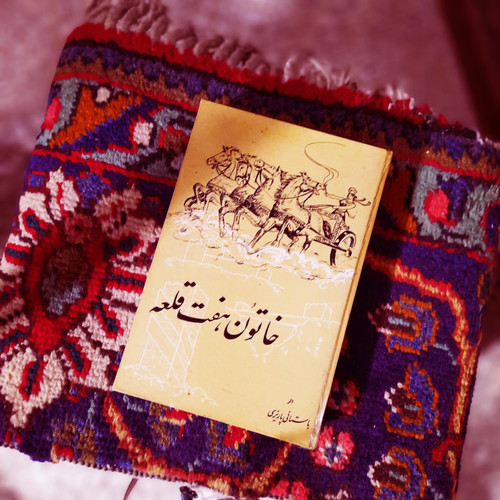 خاتون هفت قلعه
از
باستانی پاریزی